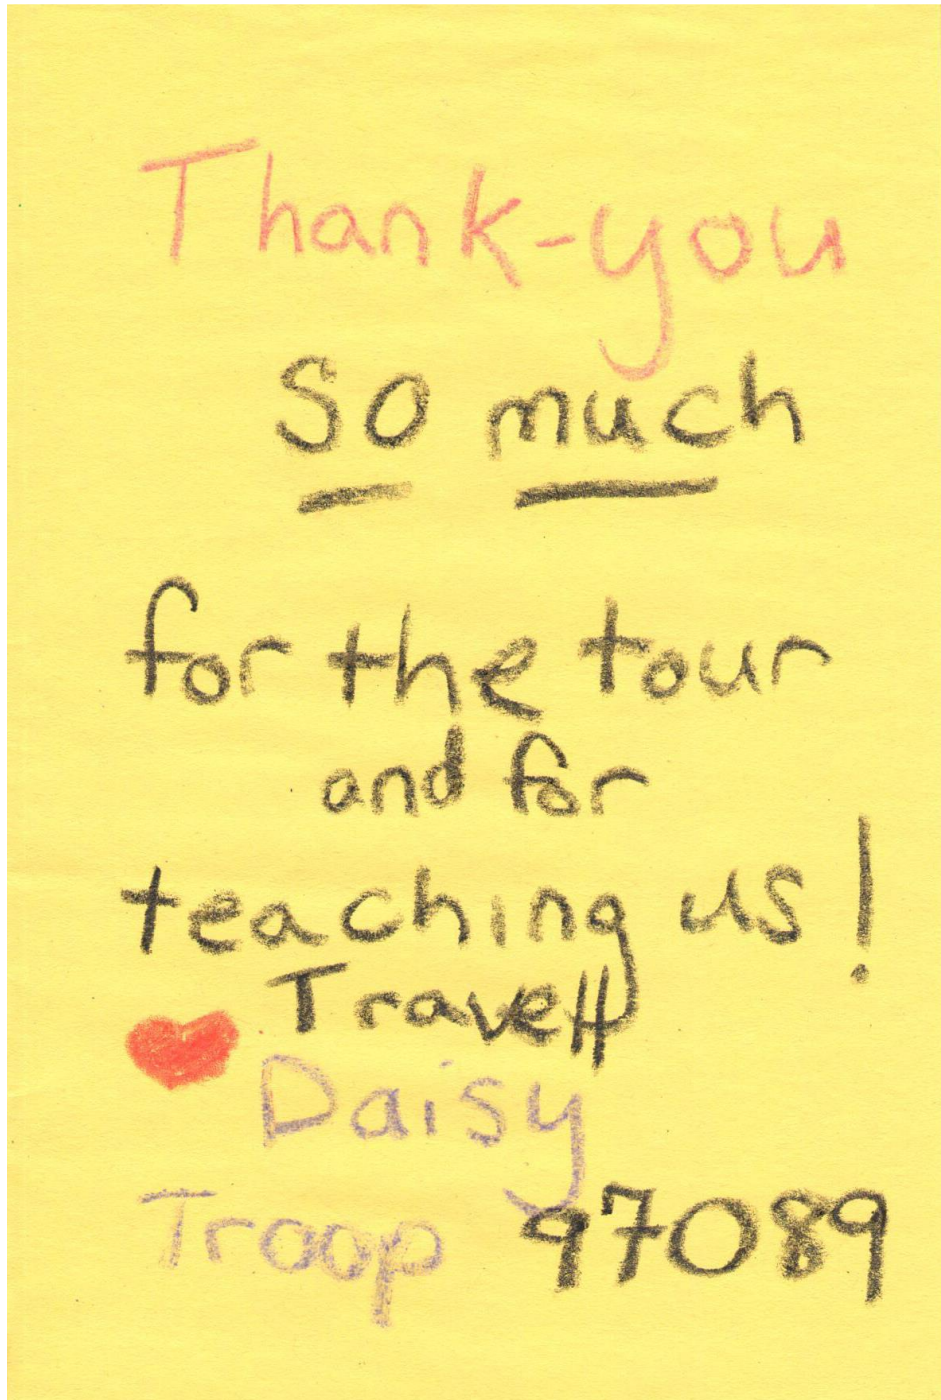 Thank-you
so much
for the tour
and for
teaching us!
Travell
Daisy
Troop 97089